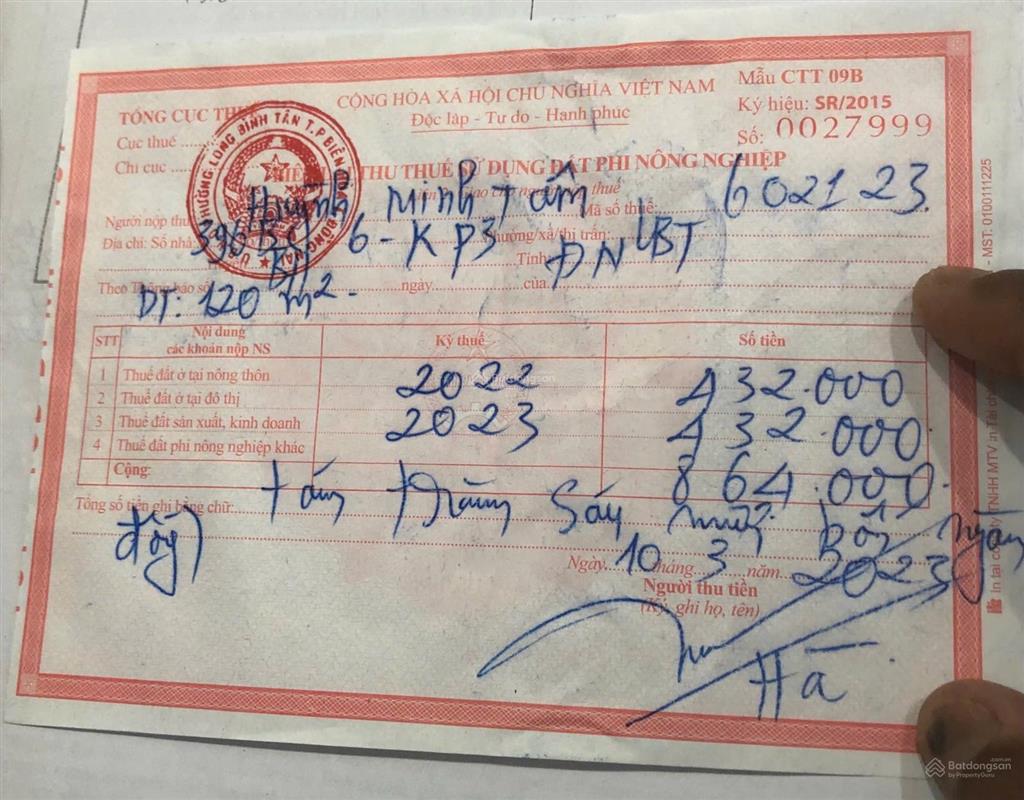 TỔNG CỤC THU
CỘNG HÒA XÃ HỘI CHỦ NGHĨA VIỆT NAM
Độc lập - Tự do - Hạnh phúc
Mẫu CTT 09B
Ký hiệu: SR/2015
Số: 0027999
Cục thuế
Chi cục
THU THUẾ SỬ DỤNG ĐẤT PHI NÔNG NGHIỆP
Người nộp thu Huỳnh Minh Tâm Mã số thuế: 602123
Địa chỉ: Số nhà: 6-KP3 Phường/xã/thị trấn: LBT
Tỉnh ĐN
Theo Thông báo số ngày của
DT: 120 m2
STT Nội dung các khoản nộp NS Kỳ thuế Số tiền
1 Thuế đất ở tại nông thôn 2022 432.000
2 Thuế đất ở tại đô thị
3 Thuế đất sản xuất, kinh doanh 2023 432.000
4 Thuế đất phi nông nghiệp khác
Cộng: 864.000
Tổng số tiền ghi bằng chữ: Tám trăm sáu mươi bốn ngàn
đồng
Ngày 10 tháng 3 năm 2023
Người thu tiền
(Ký, ghi họ, tên)
Hà
PHƯỜNG LONG BÌNH TÂN T.P BIÊN HÒA ĐỒNG NAI
MST: 0100111225
In tại công ty TNHH MTV in Tài ch
Batdongsan
.com.vn
by PropertyGuru